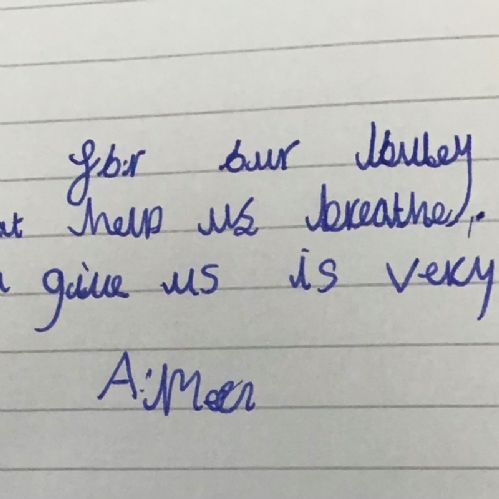 for our lovely
at help us breathe,.
give us is very
A: Meer